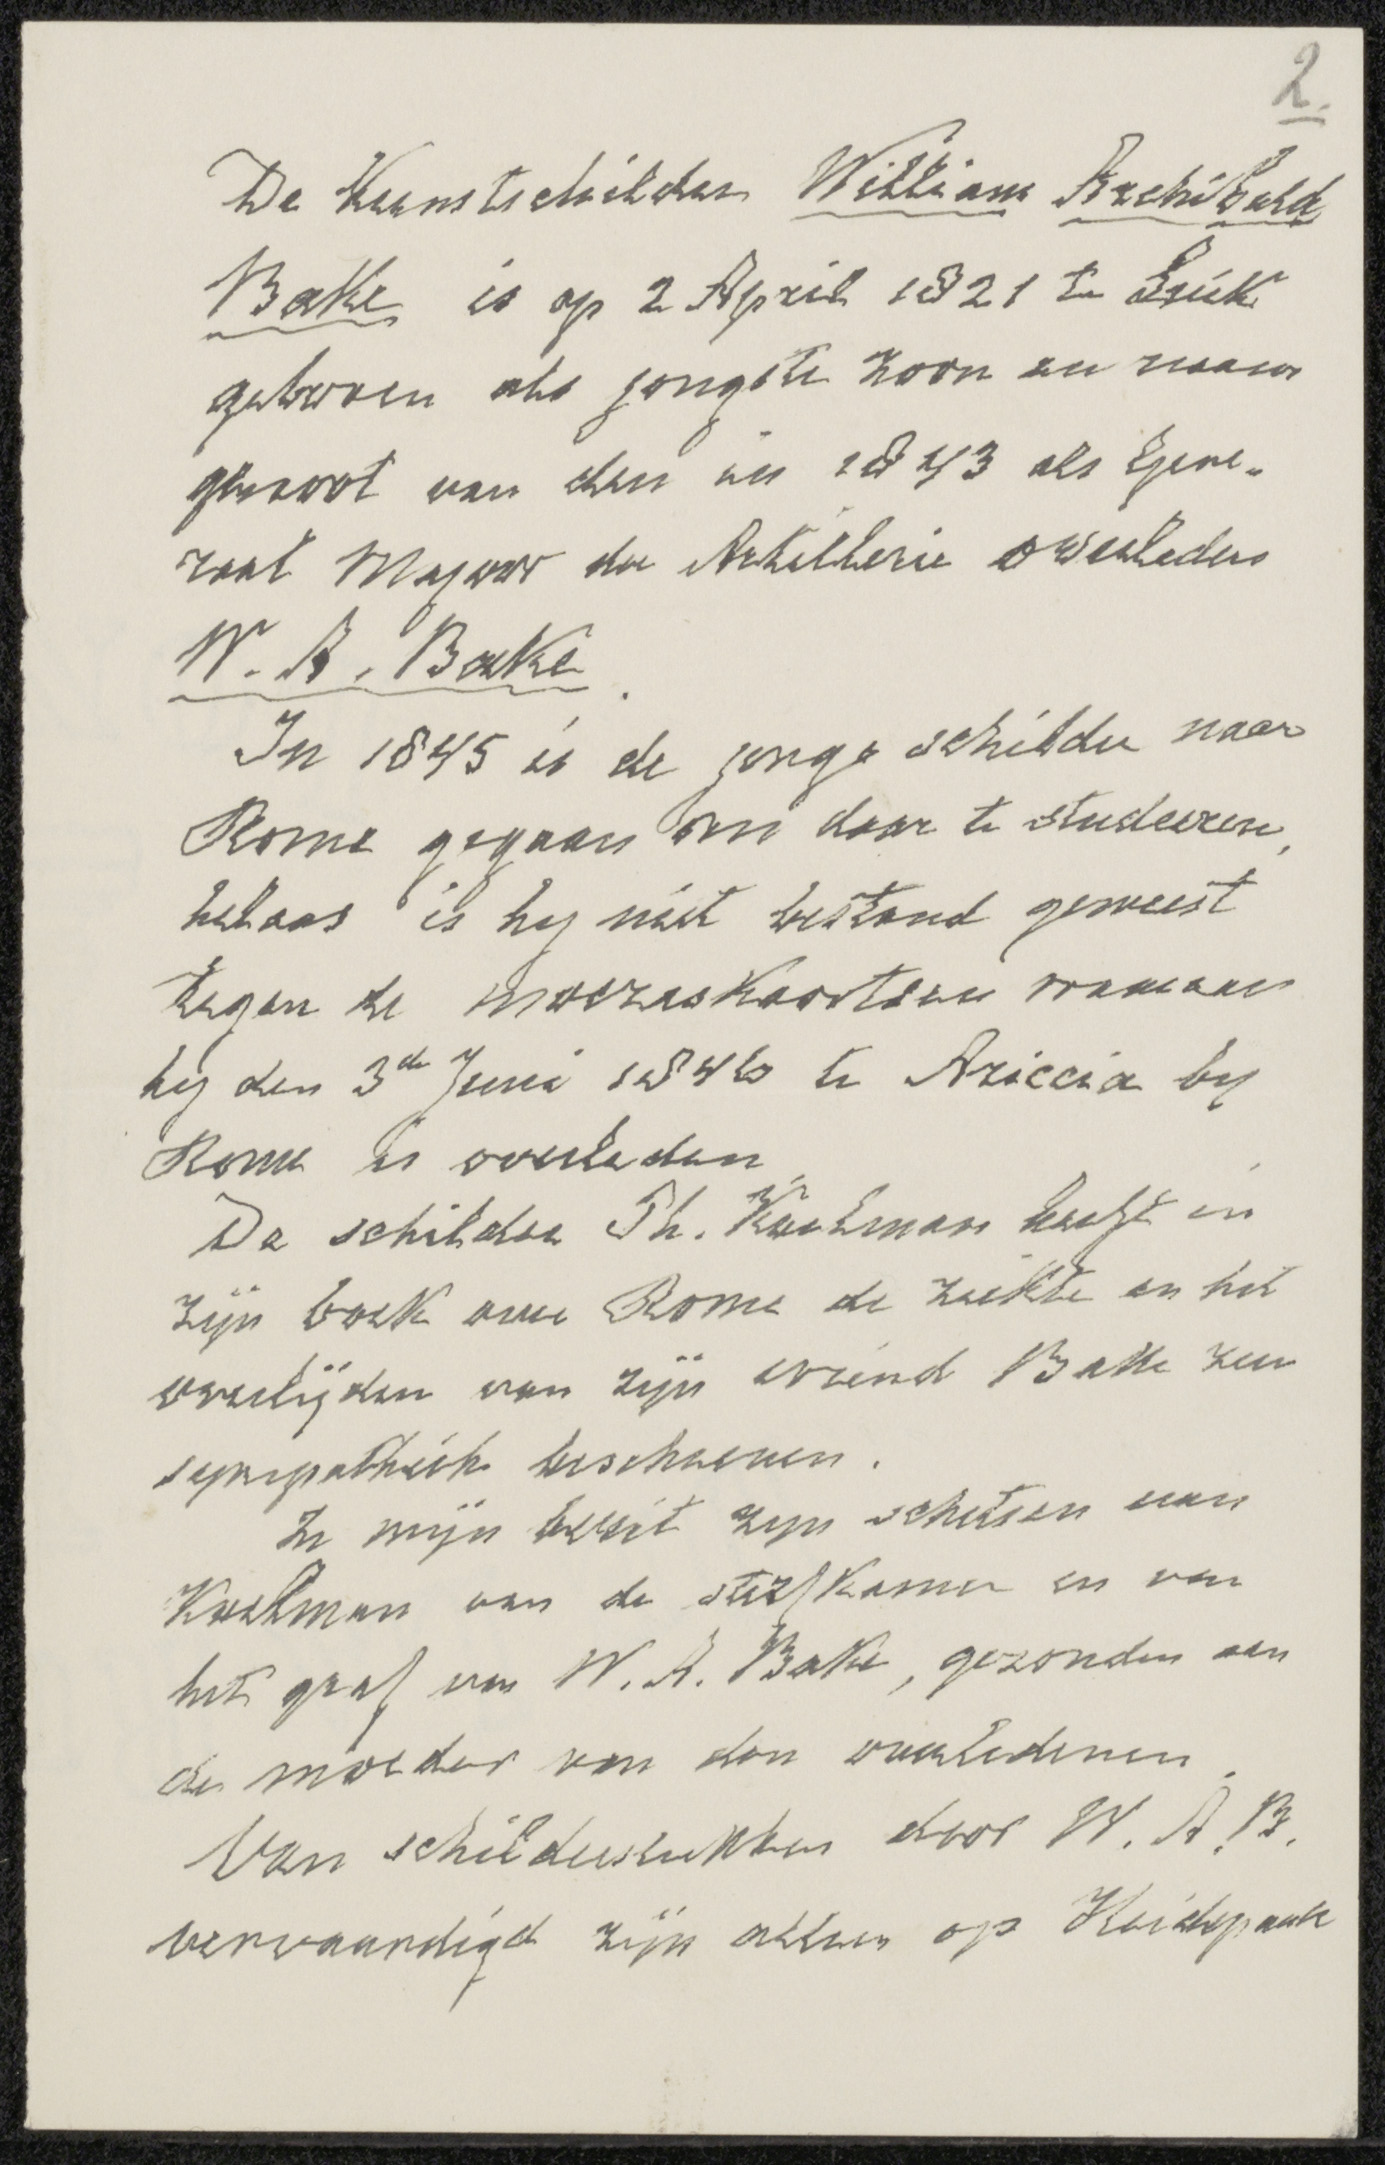 2.
De Kunstschilder William Archibald
Bake is op 2 April 1821 te Luik
geboren als jongste zoon en naam
genoot van den in 1843 als Gene-
raal Majoor der Artillerie overleden
W. A. Bake.
In 1845 is de jonge schilder naar
Rome gegaan om daar te studeeren,
helaas is hy niet bestand geweest
tegen de moeraskoortsen waaraan
hy den 3de Juni 1846 te Ariccia by
Rome is overleden.
De schilder Th. Koelman heeft in
zijn boek over Rome de ziekte en het
overlijden van zijn vriend Bake zeer
sympathiek beschreven.
In mijn bezit zyn schetsen van
Koelman van de sterfkamer en van
het graf van W. A. Bake, gezonden aan
de moeder van den overledenen.
Van schilderstukken door W. A. B.
vervaardigd zijn alleen op Heidepark